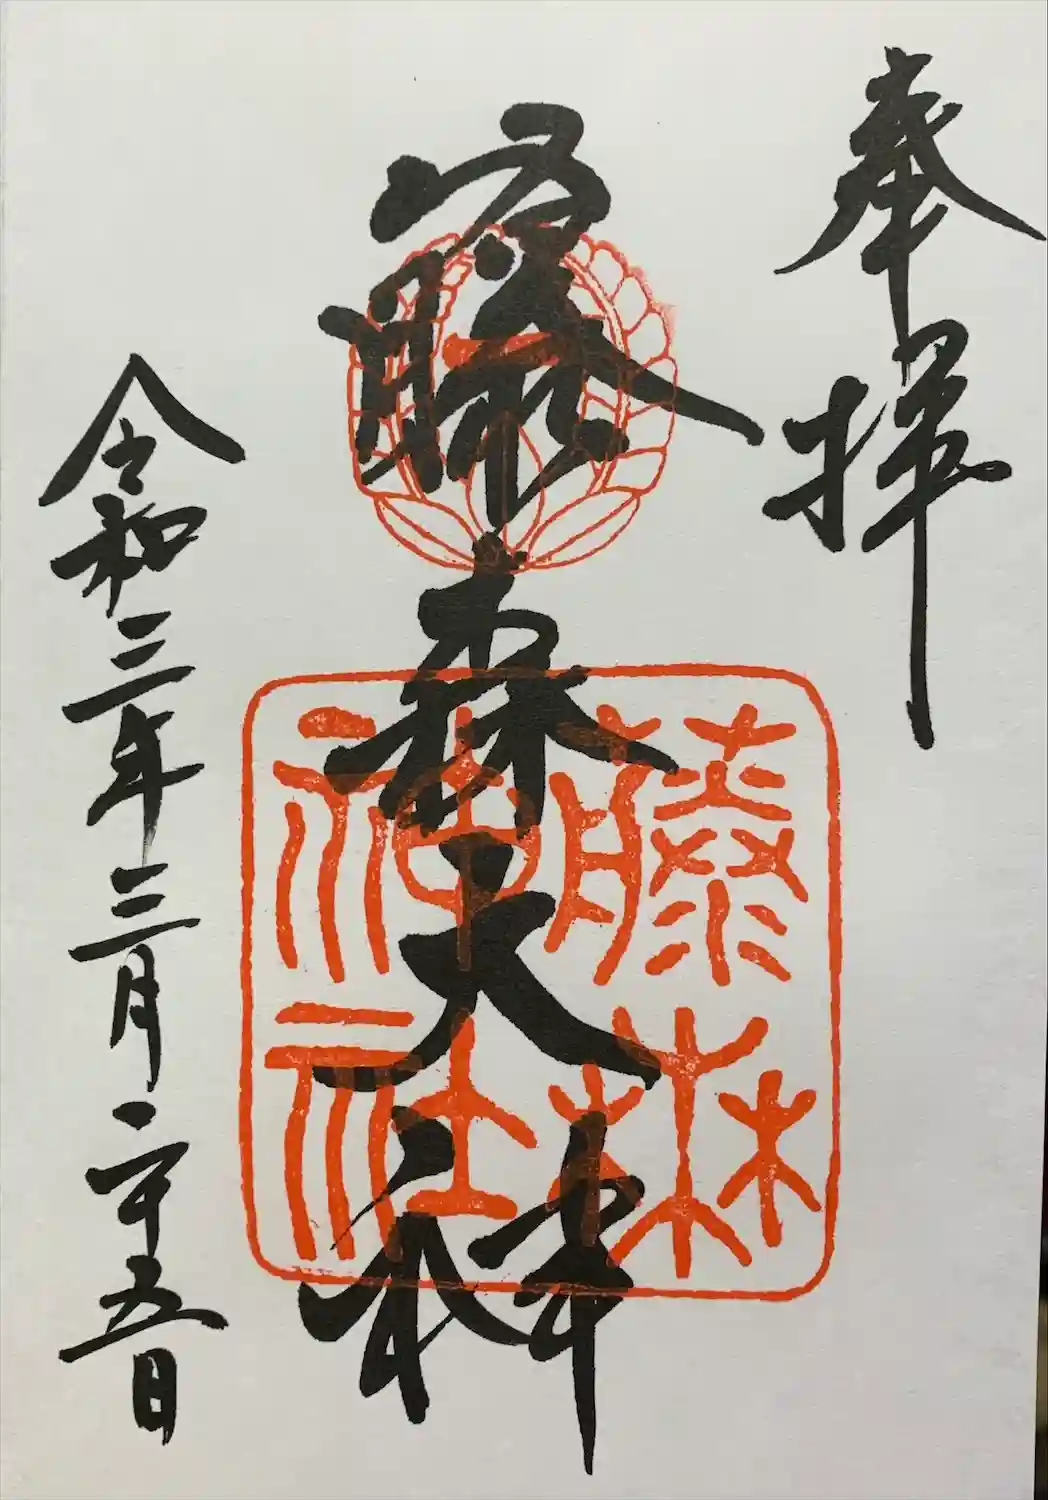 奉拝
藤森大神
藤森神社
令和三年三月二十五日